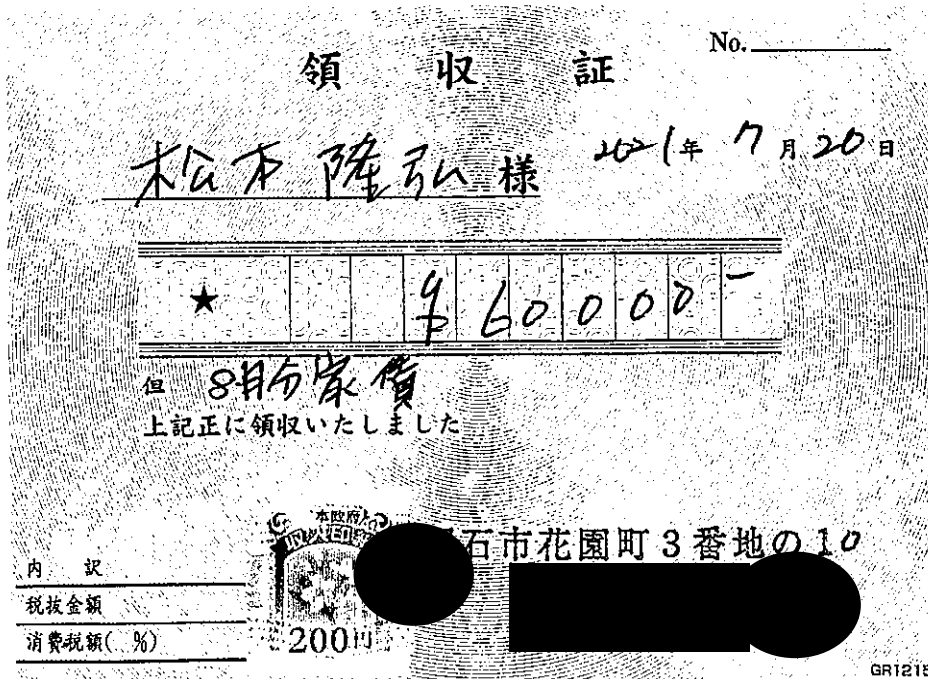 No.
領収証
松本隆弘様 2021年7月20日
★ ¥60000-
但 8月分家賃
上記正に領収いたしました
収入印紙
200円
石市花園町3番地の10
内訳
税抜金額
消費税額( %)
GR1215